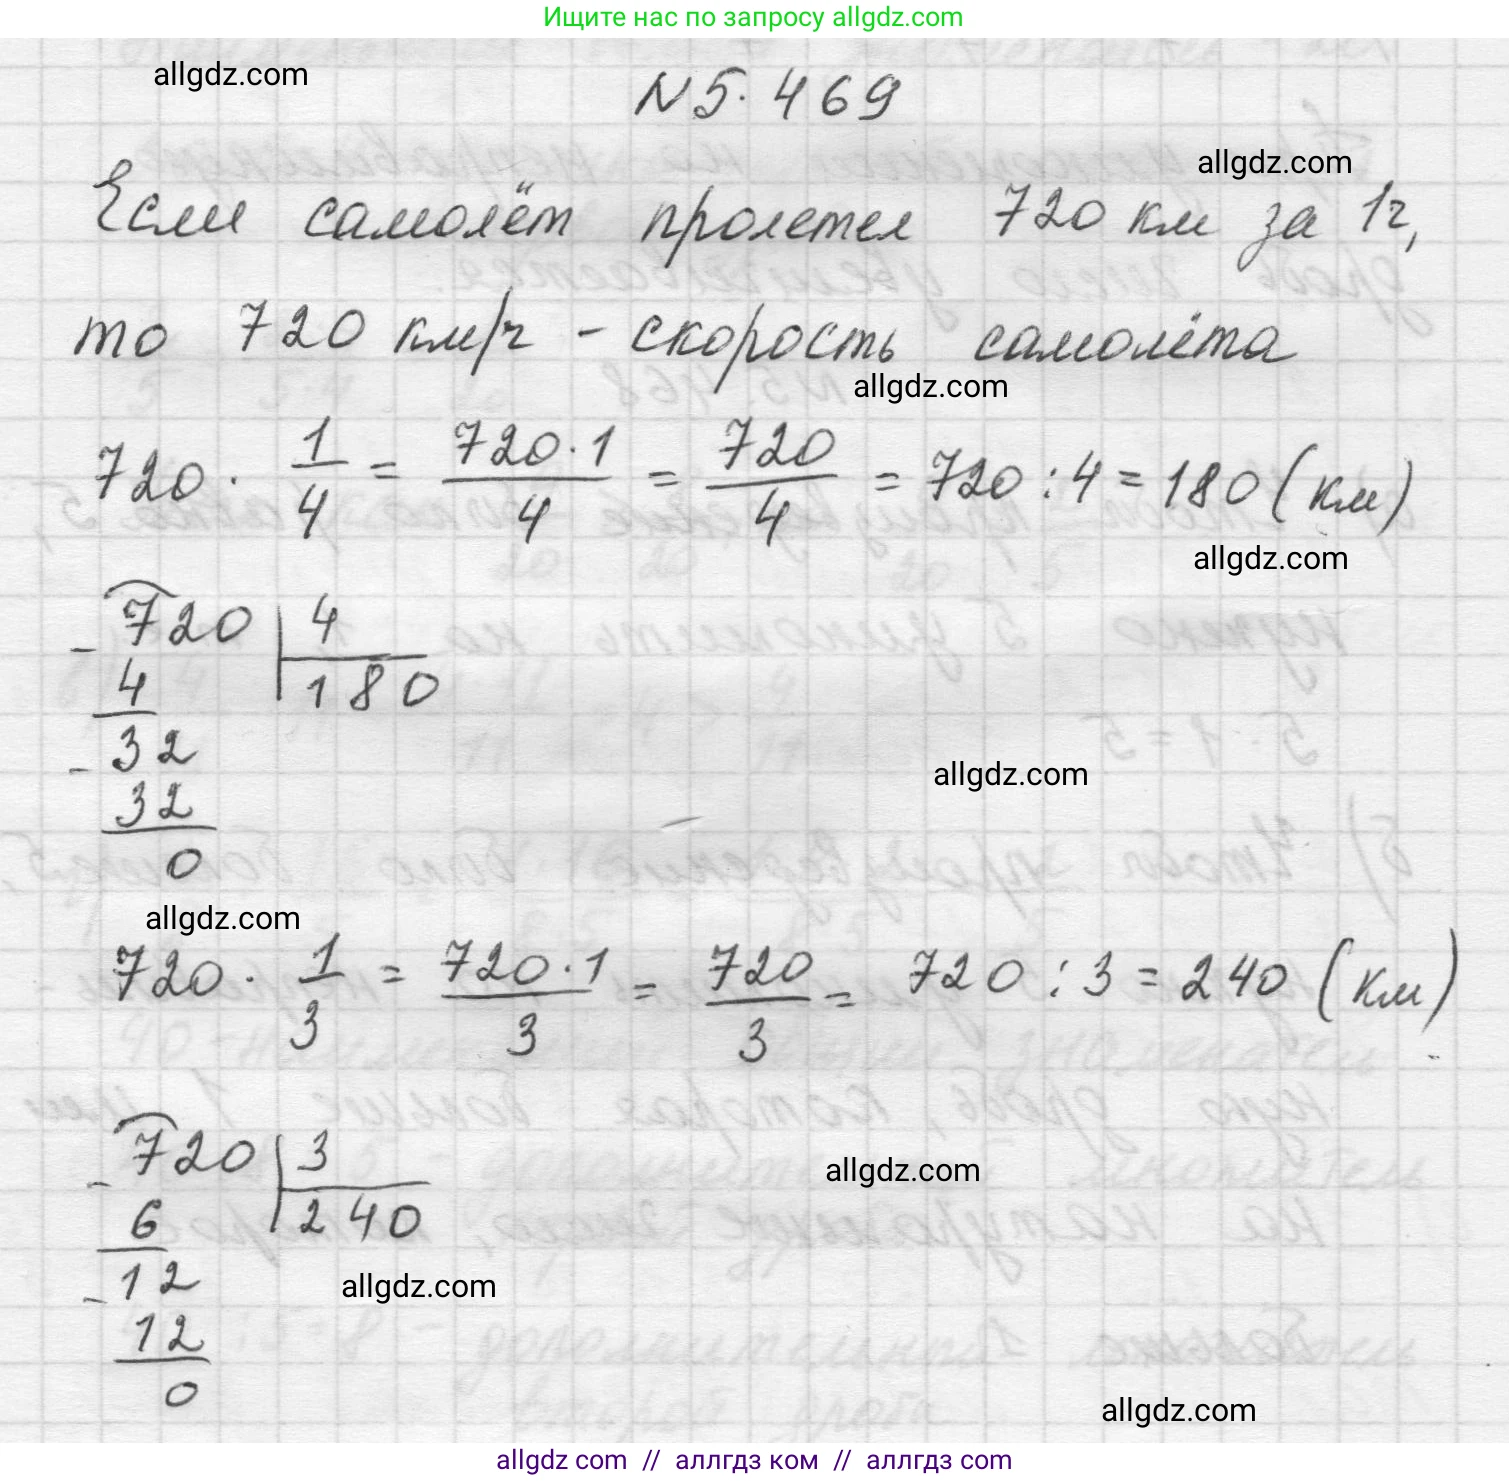 Ищите нас по запросу allgdz.com
allgdz.com
N 5.469
allgdz.com
Если самолёт пролетел 720 км за 1ч,
то 720 км/ч - скорость самолёта
allgdz.com
720 · 1/4 = 720·1/4 = 720/4 = 720 : 4 = 180 (км)
allgdz.com
- 720 | 4
4 | 180
- 32
32
0
allgdz.com
allgdz.com
720 · 1/3 = 720·1/3 = 720/3 = 720 : 3 = 240 (км)
- 720 | 3
6 | 240
- 12
12
0
allgdz.com
allgdz.com
allgdz.com
allgdz.com // аллгдз ком // аллгдз com